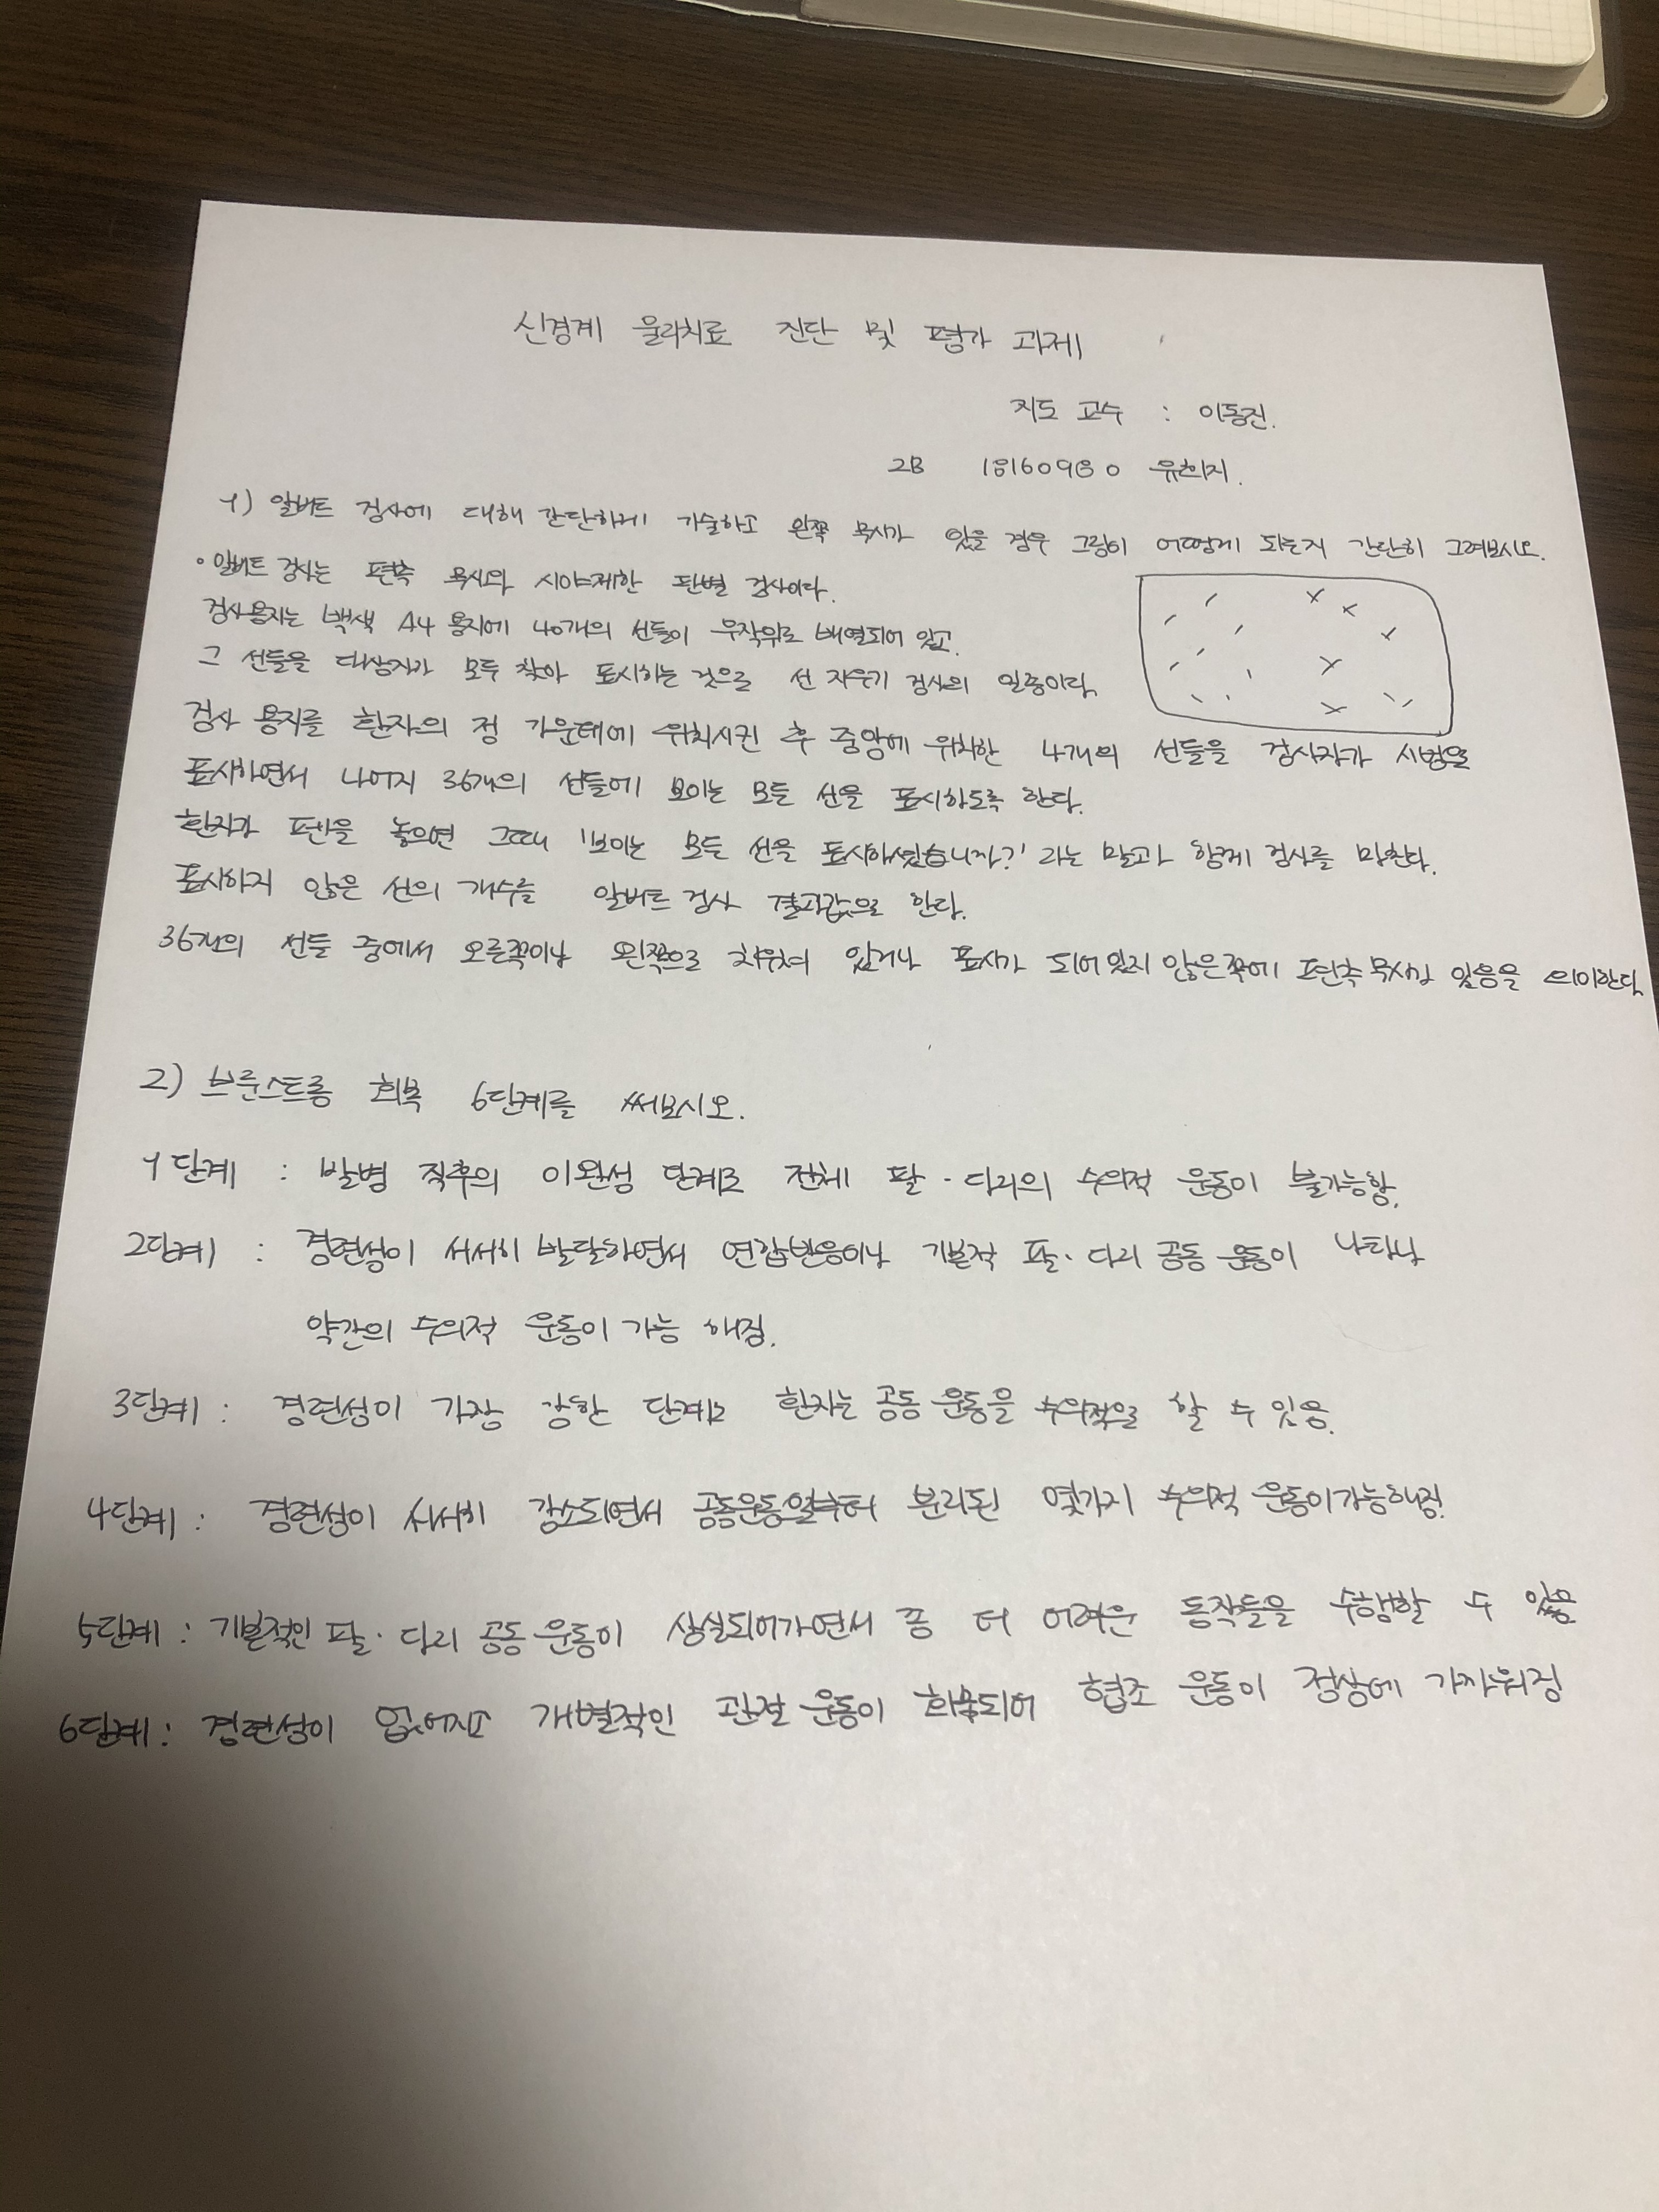 신경계 물리치료 진단 및 평가 과제
지도 교수 : 이동진.
2B 18160980 유희지.
1) 알버트 검사에 대해 간단하게 기술하고 왼쪽 무시가 있을 경우 그림이 어떻게 되는지 간단히 그려보시오.
• 알버트 검사는 편측 무시와 시야제한 판별 검사이다.
검사용지는 백색 A4 용지에 40개의 선들이 무작위로 배열되어 있고.
그 선들을 대상자가 모두 찾아 표시하는 것으로 선 지우기 검사의 일종이다.
검사 용지를 환자의 정 가운데에 위치시킨 후 중앙에 위치한 4개의 선들을 검사자가 시범을
표시하면서 나머지 36개의 선들에 보이는 모든 선을 표시하도록 한다.
환자가 펜을 놓으면 그때 '보이는 모든 선을 표시하셨습니까?' 라는 말과 함께 검사를 마친다.
표시하지 않은 선의 개수를 알버트 검사 결과값으로 한다.
36개의 선들 중에서 오른쪽이나 왼쪽으로 치우쳐 있거나 표시가 되어있지 않은쪽에 편측무시가 있음을 의미한다.
2) 브룬스트롬 회복 6단계를 써보시오.
1단계 : 발병 직후의 이완성 단계로 전체 팔·다리의 수의적 운동이 불가능함.
2단계 : 경련성이 서서히 발달하면서 연합반응이나 기본적 팔·다리 공동 운동이 나타나
약간의 수의적 운동이 가능 해짐.
3단계 : 경련성이 가장 강한 단계로 환자는 공동 운동을 수의적으로 할 수 있음.
4단계 : 경련성이 서서히 감소되면서 공동운동일부터 분리된 몇가지 수의적 운동이가능해짐.
5단계 : 기본적인 팔·다리 공동 운동이 상실되어가면서 좀 더 어려운 동작들을 수행할 수 있음
6단계 : 경련성이 없어지고 개별적인 관절 운동이 회복되어 협조 운동이 정상에 가까워짐